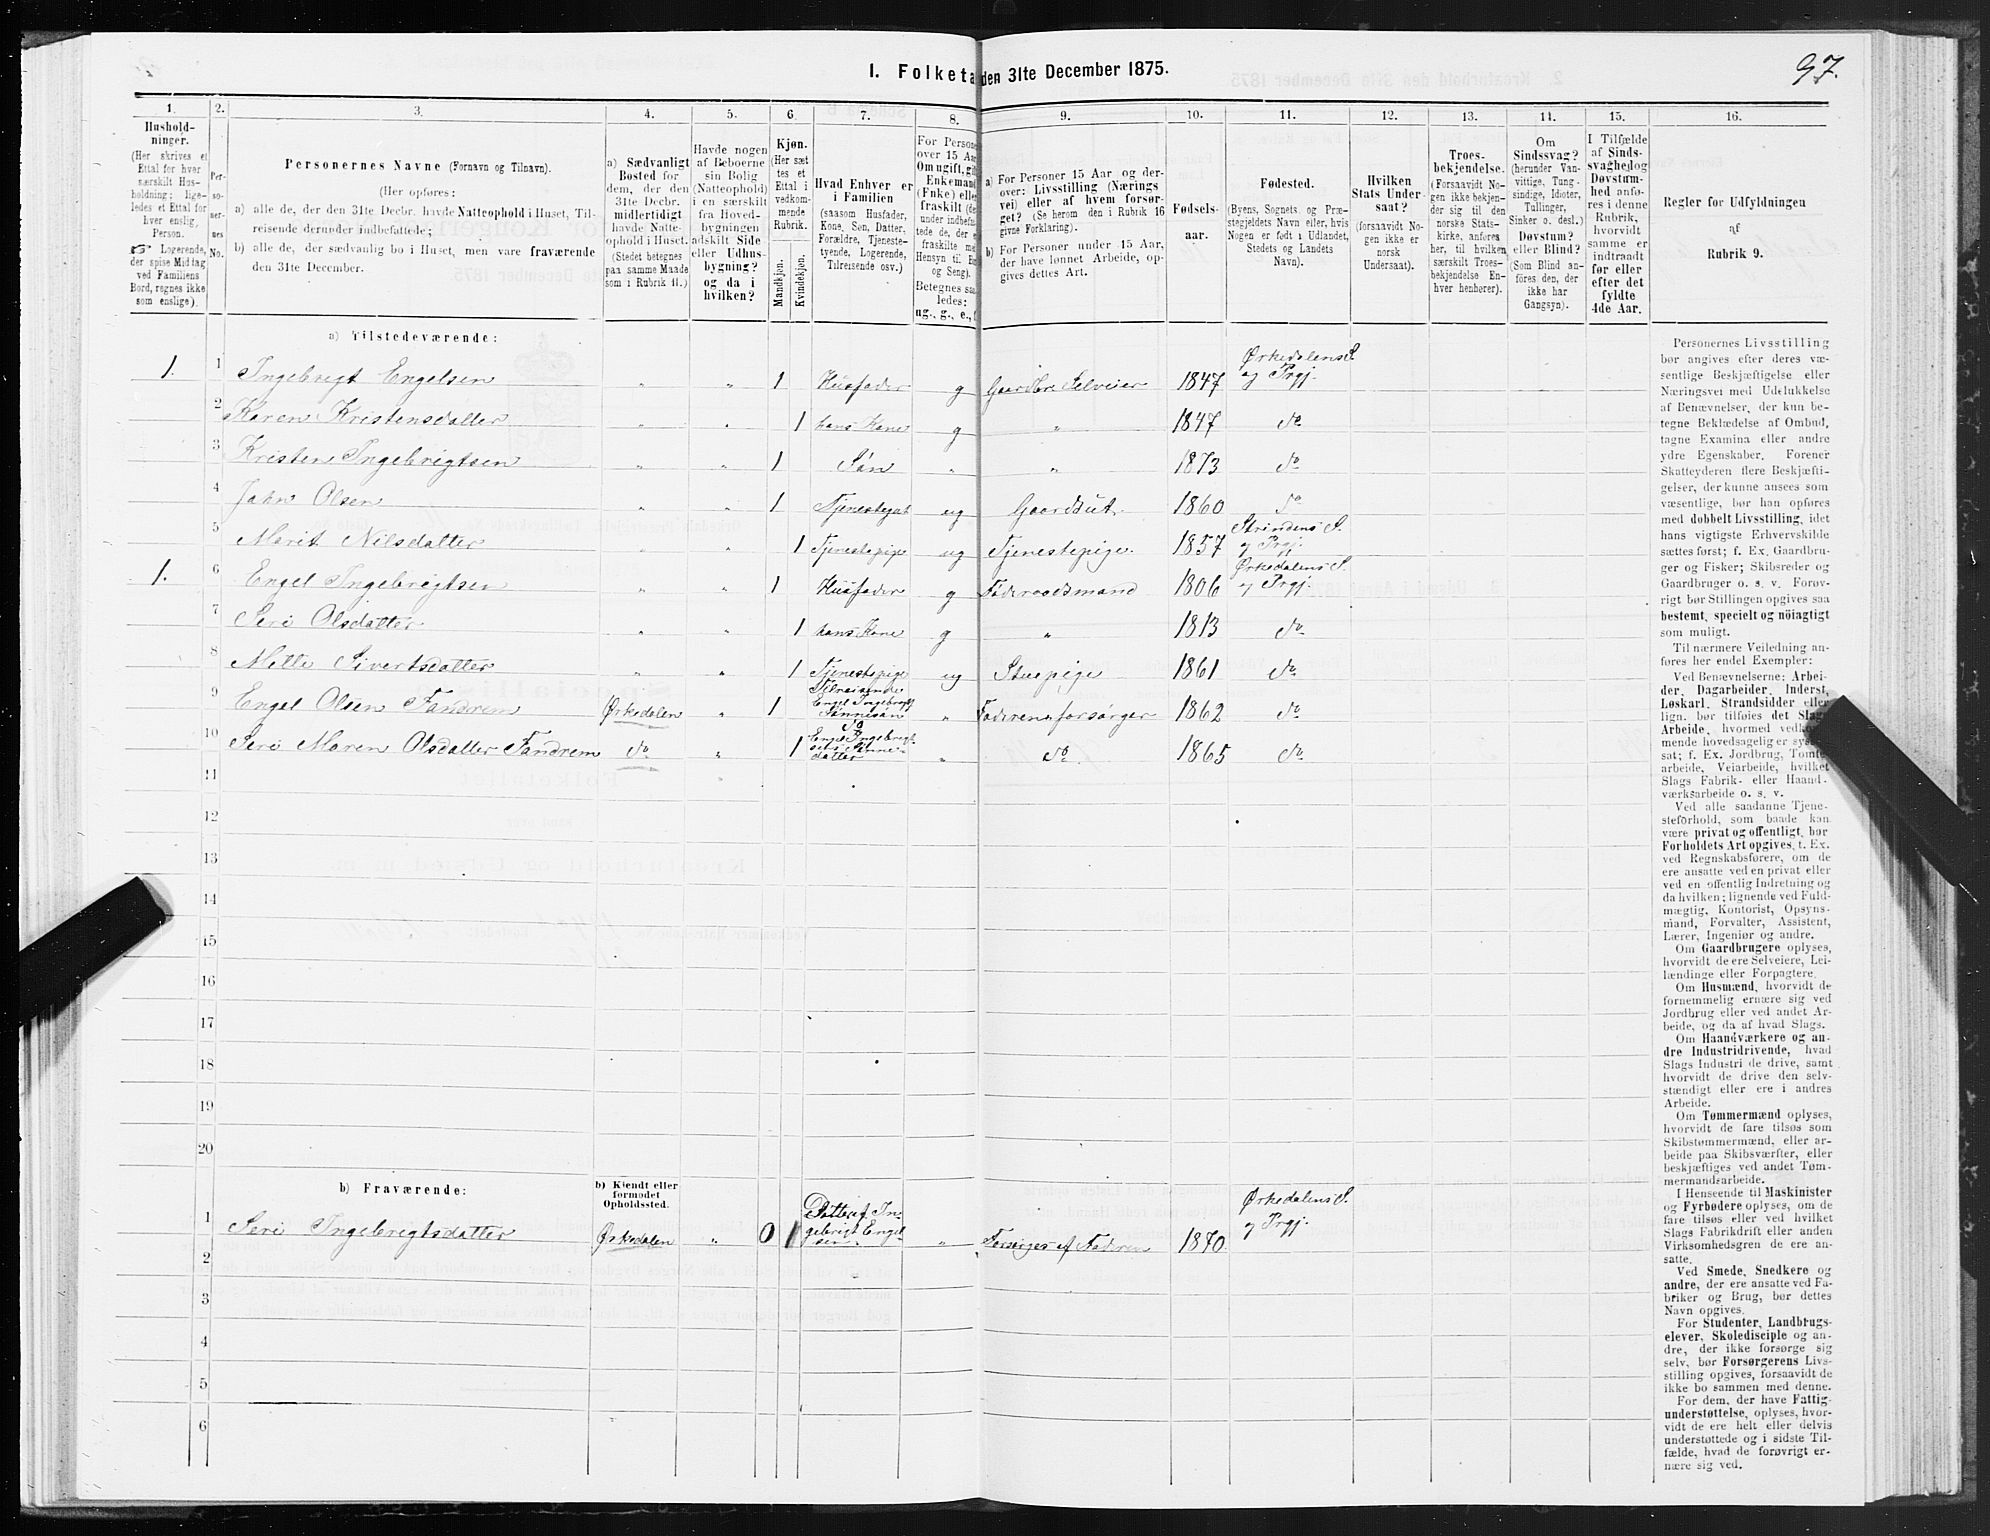 97.
I. Folketa den 31te December 1875.
1. 2. 3. 4. 5. 6. 7. 8. 9. 10. 11. 12. 13. 14. 15. 16.
Hushold-
ninger.
(Her skrives et
Ettal for hver
særskilt Hus-
holdning; lige-
ledes et Ettal for
hver enslig,
Person.
Logerende,
der spise Middag
ved Familiens
Bord, regnes ikke
som enslige).
Per-
so-
ner-
nes
No.
Personernes Navne (Fornavn og Tilnavn).
(Her opføres:
a) alle de, der den 31te Decbr. havde Natteophold i Huset, Til-
reisende derunder indbefattede;
b) alle de, der sædvanlig bo i Huset, men vare fraværende
den 31te December.
a) Sædvanligt
Bosted for
dem, der den
31te Decbr.
midlertidigt
havde Natte-
ophold i Huset.
(Stedet betegnes
paa samme Maade
som i Rubrik 11.)
Havde nogen
af Beboerne
sin Bolig
(Natteophold)
i en særskilt
fra Hoved-
bygningen
adskilt Side
eller Udhus-
bygning?
og da i
hvilken?
Kjøn.
(Her sæt
tes et
Ettal i
vedkom-
mende
Rubrik.
Mandkjøn.
Kvindekjøn.
Hvad Enhver er
i Familien
(saasom Husfader,
Kone, Søn, Datter,
Forældre, Tjeneste-
tyende, Logerende,
Tilreisende osv.)
For Person
over 15 Aar
Om ugift, gift
Enkemand
(Enke) eller
fraskilt (de
under indbefat-
tede de, der e
fraskilte m
Hensyn til Bo
og Seng).
Betegnes saa-
ledes:
ug., g., e., f
a) For Personer 15 Aar og der-
over: Livsstilling (Nærings
vei) eller af hvem forsør-
get? (Se herom den i Rubrik 16
givne Forklaring).
b) For Personer under 15 Aar,
der have lønnet Arbeide, op-
gives dettes Art.
Fødsels-
aar.
Fødested.
(Byens, Sognets og Præ-
stegjeldets Navn eller, hvis
Nogen er født i Udlandet,
Stedets og Landets
Navn).
Hvilken
Stats Under-
saat?
(forsaavidt No-
gen ikke er
norsk
Undersaat).
Troes-
bekjendelse.
(Forsaavidt No-
gen ikke bekjen-
der sig til den
norske Stats-
kirke, anføres
her, til hvilken
særskilt Troes-
bekjendelse En-
hver henhører).
Om
Sindssvag?
(herunder Van-
vittige, Tung-
sindige, Idioter,
Tullinger,
Sinker o. desl.)
Døvstum?
eller Blind?
(Som Blind an-
føres den, der
ikke har
Gangsyn).
I Tilfælde
af Sinds-
svaghed og
Døvstum-
hed anfø-
res i denne
Rubrik,
hvorvidt
samme er
indtraadt
før eller
efter det
fyldte
4de Aar.
Regler for Udfyldningen
af
Rubrik 9.
a) Tilstedeværende:
1. 1 Ingebrigt Engelsen " " 1 Husfader g Gaardbr. Selveier 1847 Ørkedalens S. og Prgj.
2 Karen Kristensdatter " " 1 hans Kone g " 1847 do
3 Kristen Ingebrigtsen " " 1 Søn " " 1873 do
4 John Olsen " " 1 Tjenestegut ug Gaardsut. 1860 do
5 Marit Nilsdatter " " 1 Tjenestepige ug Tjenestepige. 1857 Strindens S. og Prgj.
1. 6 Engel Ingebrigtsen " " 1 Husfader g Føderaadsmand 1806 Ørkedalens S. og Prgj.
7 Seri Olsdatter " " 1 hans Kone g " 1813 do
8 Mette Sivertsdatter " " 1 Tjenestepige ug Stuepige 1861 do
9 Engel Olsen Fandrem Ørkedalen " 1 Tilreisende Engel Ingebrigts Sønnesøn " Faderen forsørger 1862 do
10 Seri Maren Olsdatter Fandrem do " 1 do Engel Ingebrigt-sens Sønne-datter " do. 1865 do
11 "
12
13
14
15
16
17
18
19
20
b) Fraværende:
b) Kjendt eller
formodet
Opholdssted.
1 Seri Ingebrigtsdatter Ørkedalen " 0 1 Datter af In-gebrigt Engel-sen " Forsørges af Faderen 1870. Ørkedalens S. og Prgj.
2
3
4
5
6
Personernes Livsstilling
bør angives efter deres væ-
sentlige Beskjæftigelse eller
Næringsvei med Udelukkelse
af Benævnelser, der kun be-
tegne Beklædelse af Ombud,
tagne Examina eller andre
ydre Egenskaber. Forener
Skatteyderen flere Beskjæfti-
gelser, der kunne ansees som
væsentlige, bør han opføres
med dobbelt Livsstilling, idet
hans vigtigste Erhvervskilde
sættes først; f. Ex. Gaardbru-
ger og Fisker; Skibsreder og
Gaardbruger o. s. v. Forøv-
rigt bør Stillingen opgives saa
bestemt, specielt og nöiagtigt
som muligt.
Til nærmere Veiledning an-
føres her endel Exempler:
Ved Benævnelserne: Arbei-
der, Dagarbeider, Inderst,
Løskarl, Strandsidder eller
lign. bør tilføies det Slags
Arbeide, hvormed vedkom-
mende hovedsagelig er syssel-
sat; f. Ex. Jordbrug, Tomte-
arbeide, Veiarbeide, hvilket
Slags Fabrik- eller Haand-
værksarbeide o. s. v.
Ved alle saadanne Tjene-
steforhold, som baade kan
være privat og offentligt, bør
Forholdets Art opgives, t. Ex.
ved Regnskabsførere, om de
ere ansatte ved en privat eller
ved en offentlig Indretning og
da hvilken; lignende ved Fuld-
mægtig, Kontorist, Opsyns-
mand, Forvalter, Assistent,
Lærer, Ingeniør og andre.
Om Gaardbrugere oplyses,
hvorvidt de ere Selveiere, Lei-
lændinge eller Forpagtere.
Om Husmænd, hvorvidt de
fornemmelig ernære sig ved
Jordbrug eller ved andet Ar-
beide, og da af hvad Slags.
Om Haandværkere og an-
dre Industridrivende, hvad
Slags Industri de drive, samt
hvorvidt de drive den selv-
stændigt eller ere i andres
Arbeide.
Om Tømmermænd oplyses,
hvorvidt de fare tilsøs som
Skibstømmermænd, eller ar-
beide paa Skibsværfter, eller
beskjæftiges ved andet Tøm-
mermandsarbeide.
I Henseende til Maskinister
og Fyrbødere oplyses, om de
fare tilsøs eller ved hvilket
Slags Fabrikdrift eller anden
Virksomhedsgren de ere an-
satte.
Ved Smede, Snedkere og
andre, der ere ansatte ved Fa-
briker og Brug, bør dettes
Navn opgives.
For Studenter, Landbrugs-
elever, Skoledisciple og an-
dre, der ikke forsørge sig
selv, bør Forsørgerens Livs-
stilling opgives, forsaavidt de
ikke bo sammen med denne.
For dem, der have Fattig-
understøttelse, oplyses, hvor-
vidt de ere helt eller delvis
understøttede og i sidste Til-
fælde, hvad de forøvrigt er-
nære sig ved.